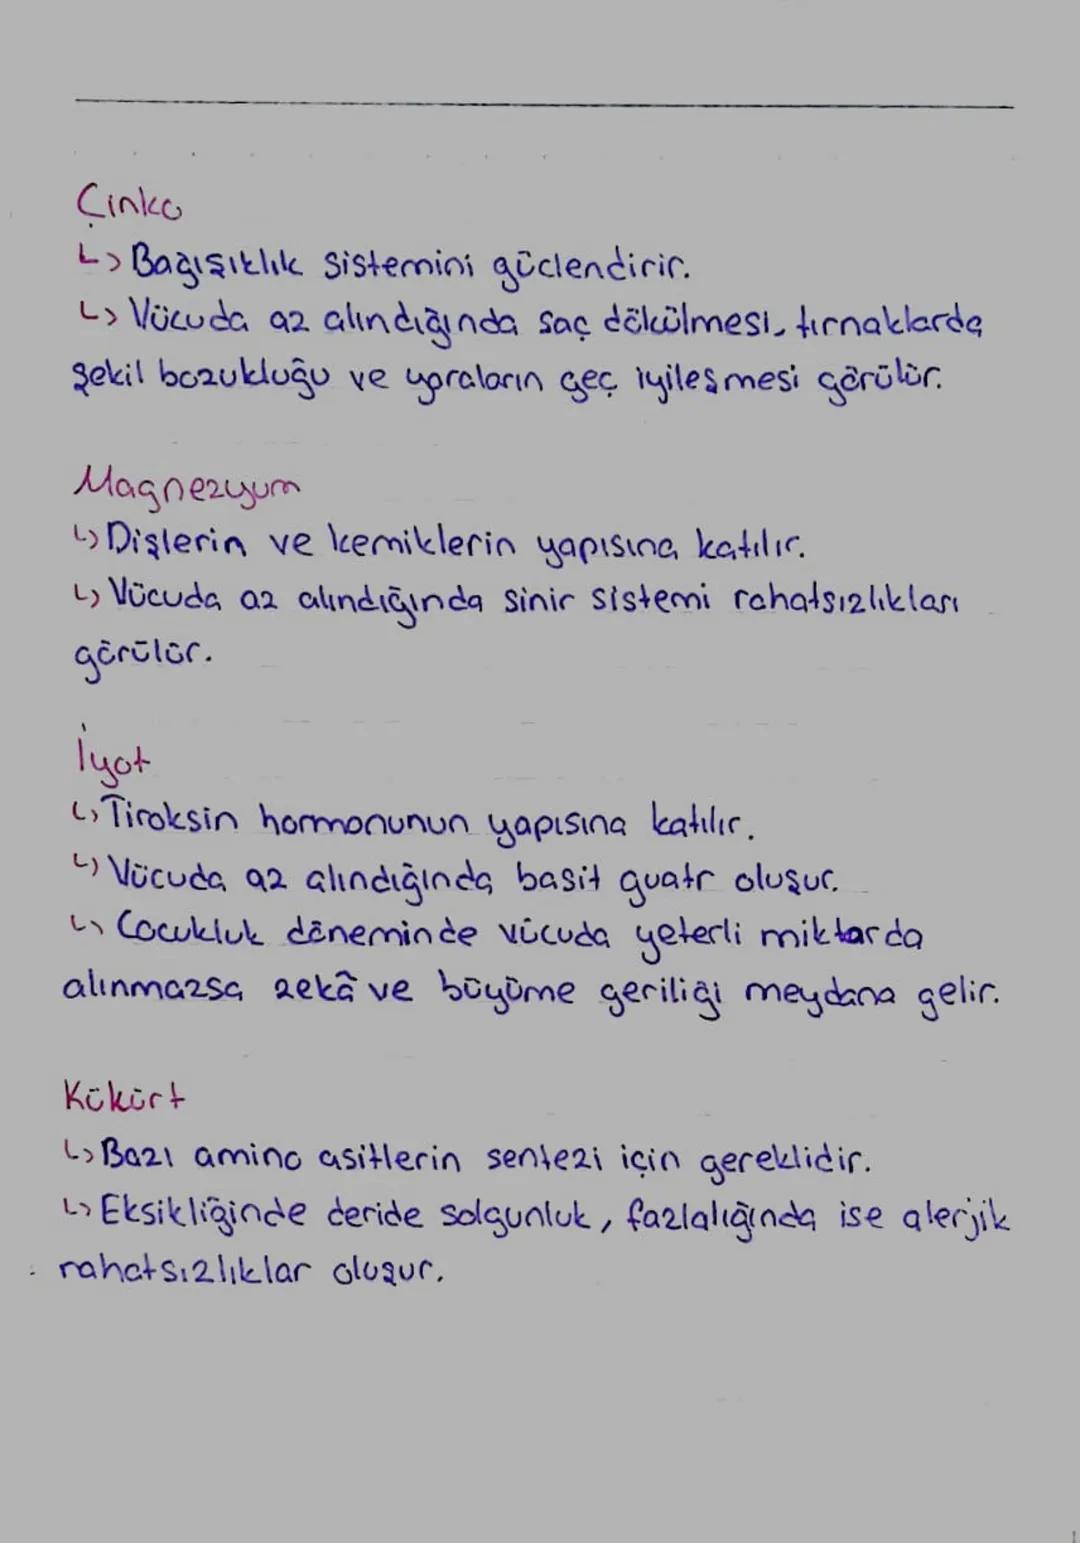 Çinko
↳ Bağışıklık sistemini güclendirir.
↳ Vücuda az alındığında saç dökülmesi, tırnaklarda
şekil bozukluğu ve yaraların geç iyileşmesi görülür.
Magnezyum
↳ Dişlerin ve kemiklerin yapısına katılır.
↳ Vücuda az alındığında sinir sistemi rahatsızlıkları
görülür.
İyot
↳ Tiroksin hormonunun yapısına katılır.
↳ Vücuda az alındığında basit guatr oluşur.
↳ Cocukluk döneminde vücuda yeterli miktarda
alınmazsa zekâ ve büyüme geriliği meydana gelir.
Kükürt
↳ Bazı amino asitlerin sentezi için gereklidir.
↳ Eksikliğinde deride solgunluk, fazlalığında ise alerjik
rahatsızlıklar oluşur.